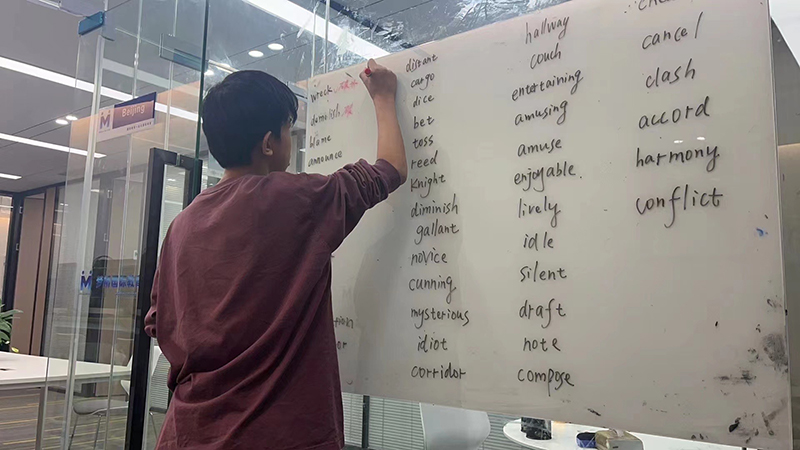 M
Beijing
M
wreck
demolish
blame
announce
distant
cargo
dice
bet
toss
reed
knight
diminish
gallant
novice
cunning
mysterious
idiot
corridor
hallway
couch
entertaining
amusing
amuse
enjoyable.
lively
idle
silent
draft
note
compose
cancel
clash
accord
harmony
conflict